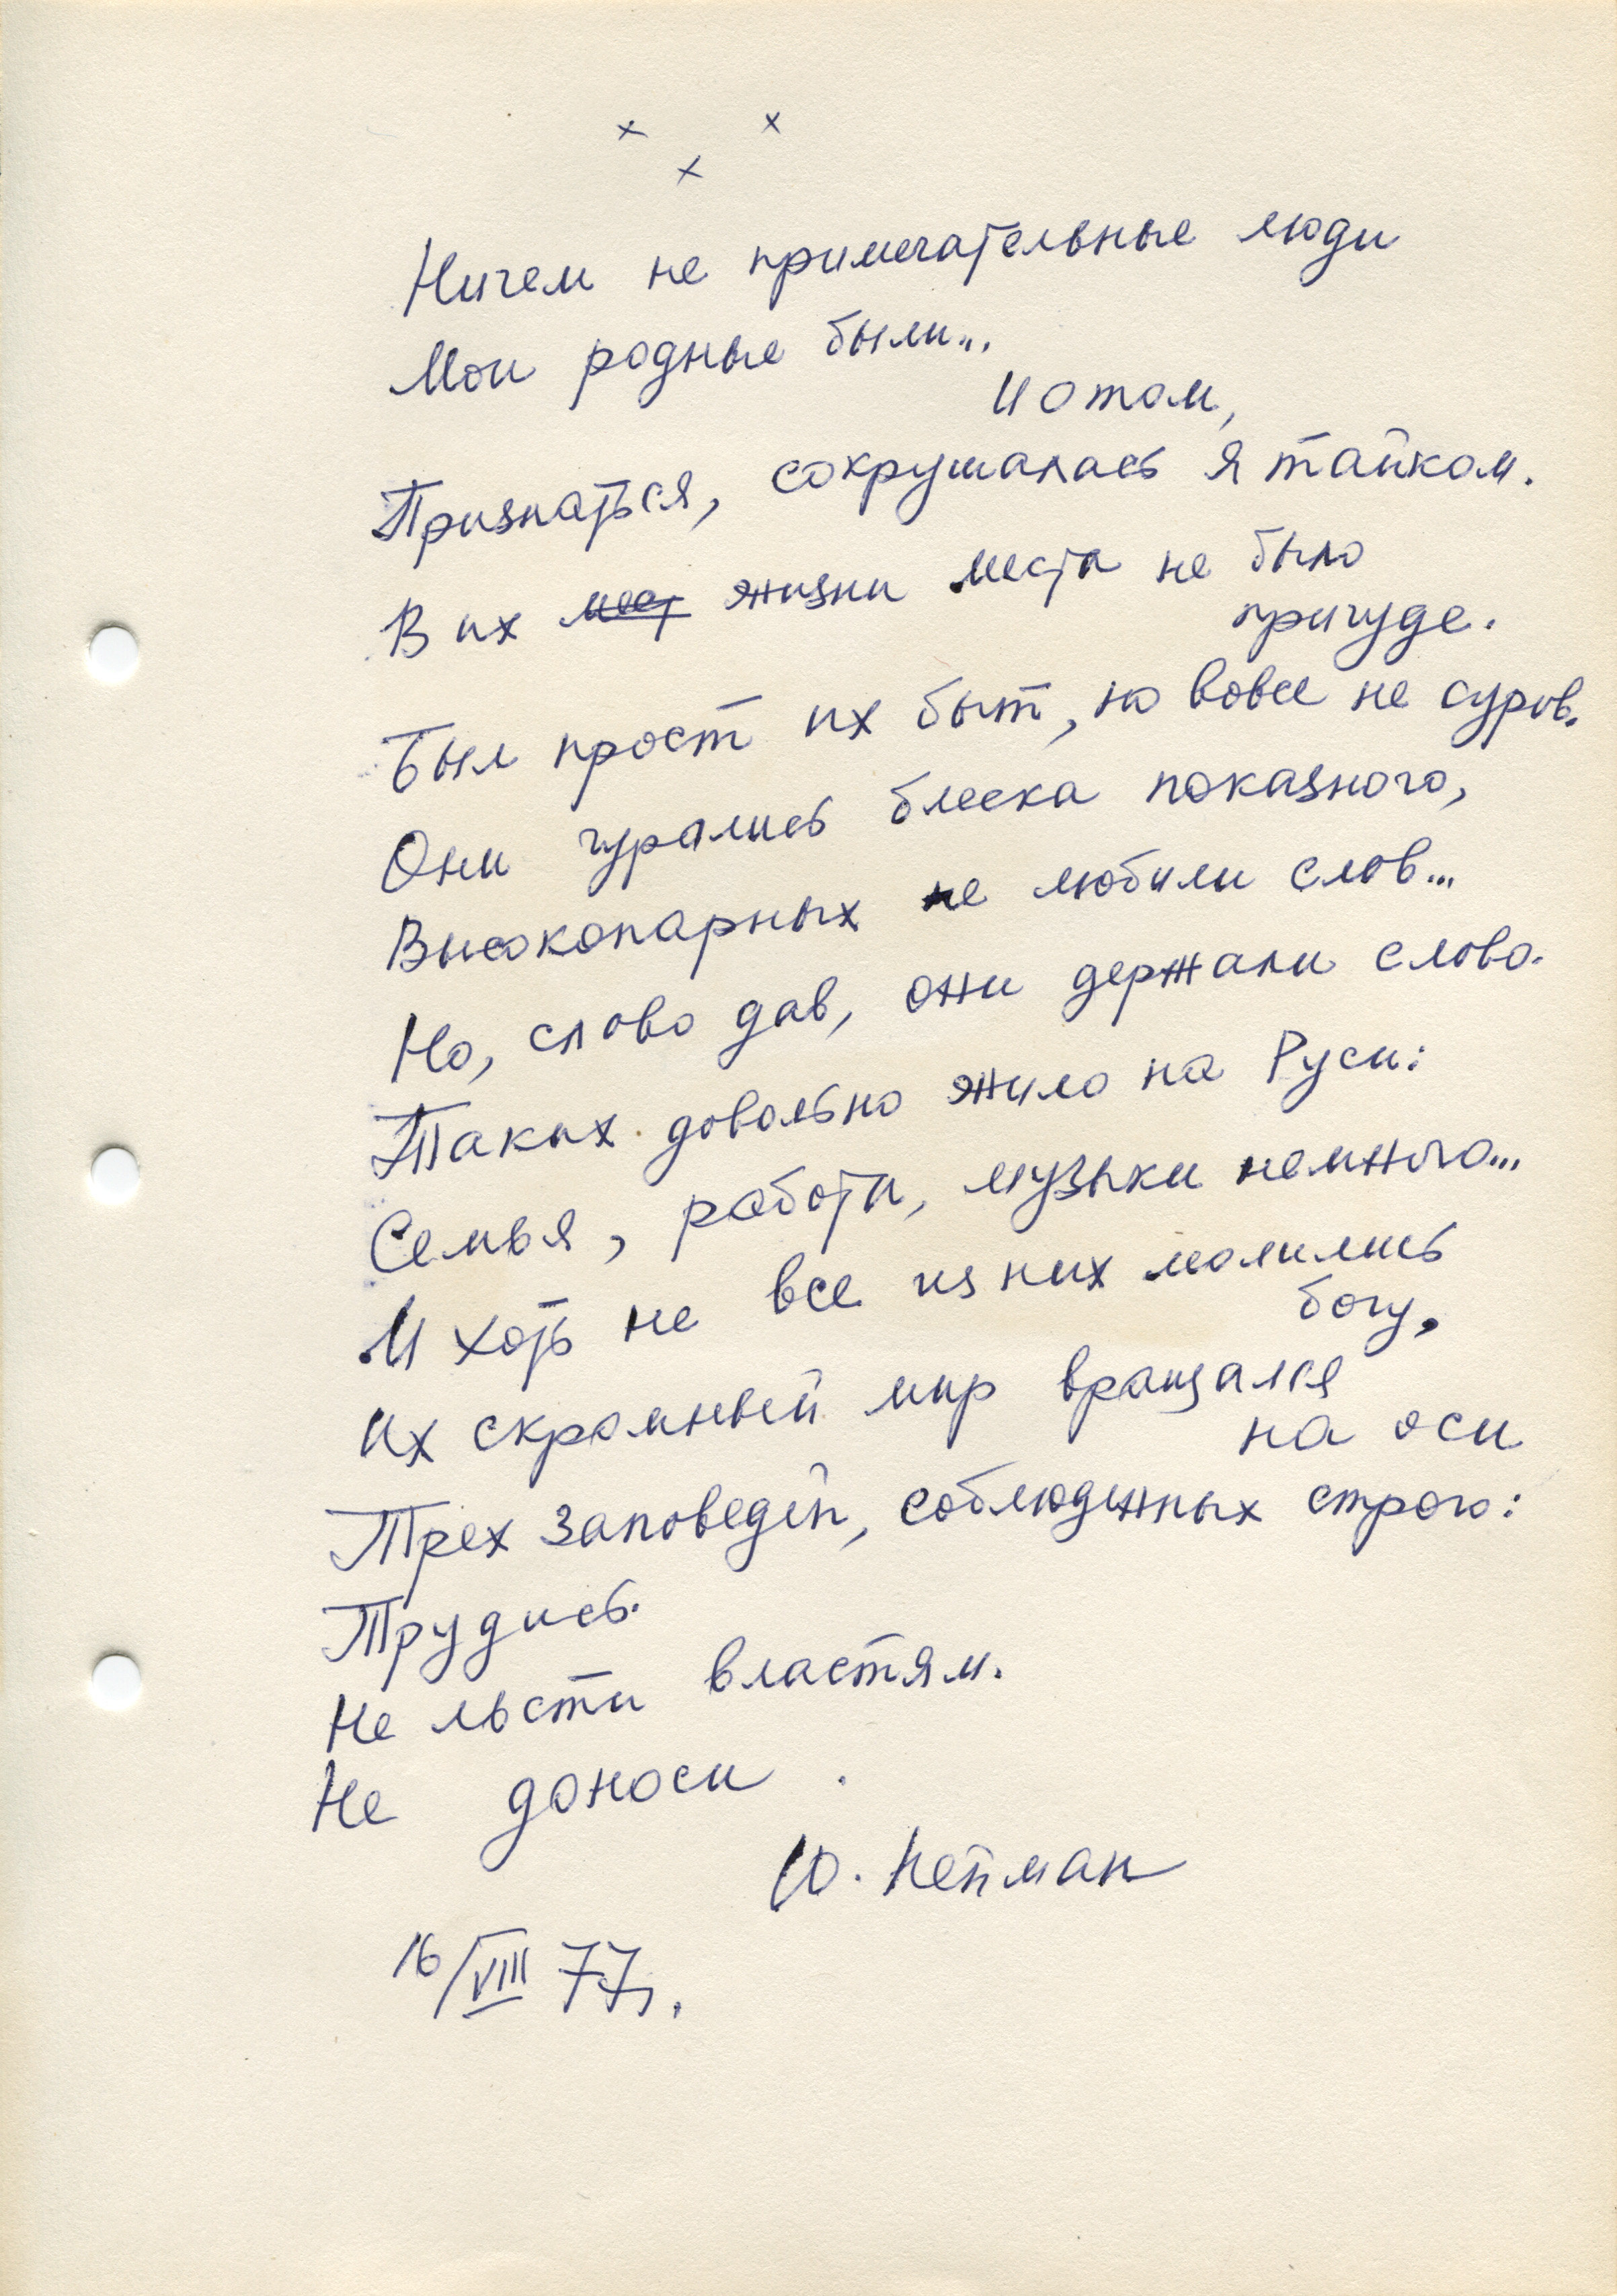 x x
x
Ничем не примечательные люди
Мои родные были...
И о том,
Признаться, сокрушалась я тайком.
В их мест жизни места не было
причуде.
Был прост их быт, но вовсе не суров.
Они чурались блеска показного,
Высокопарных не любили слов...
Но, слово дав, они держали слово.
Таких довольно жило на Руси:
Семья, работа, музыки немного...
И хоть не все из них молились
богу,
Их скромный мир вращался
на оси
Трех заповедей, соблюденных строго:
Трудись.
Не льсти властям.
Не доноси.
Ю. Нейман
16/VIII 77г.